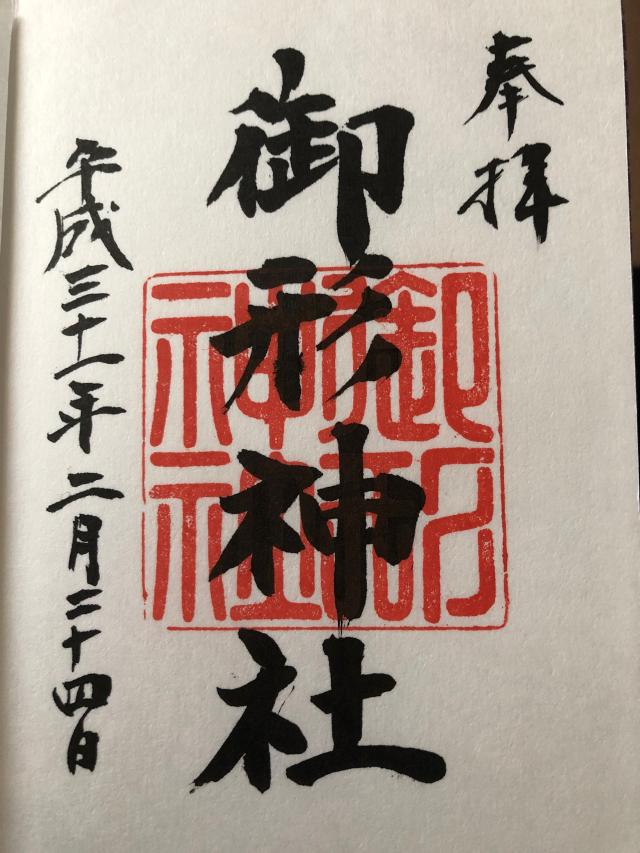 奉拝
御形神社
御形神社
平成三十一年二月二十四日